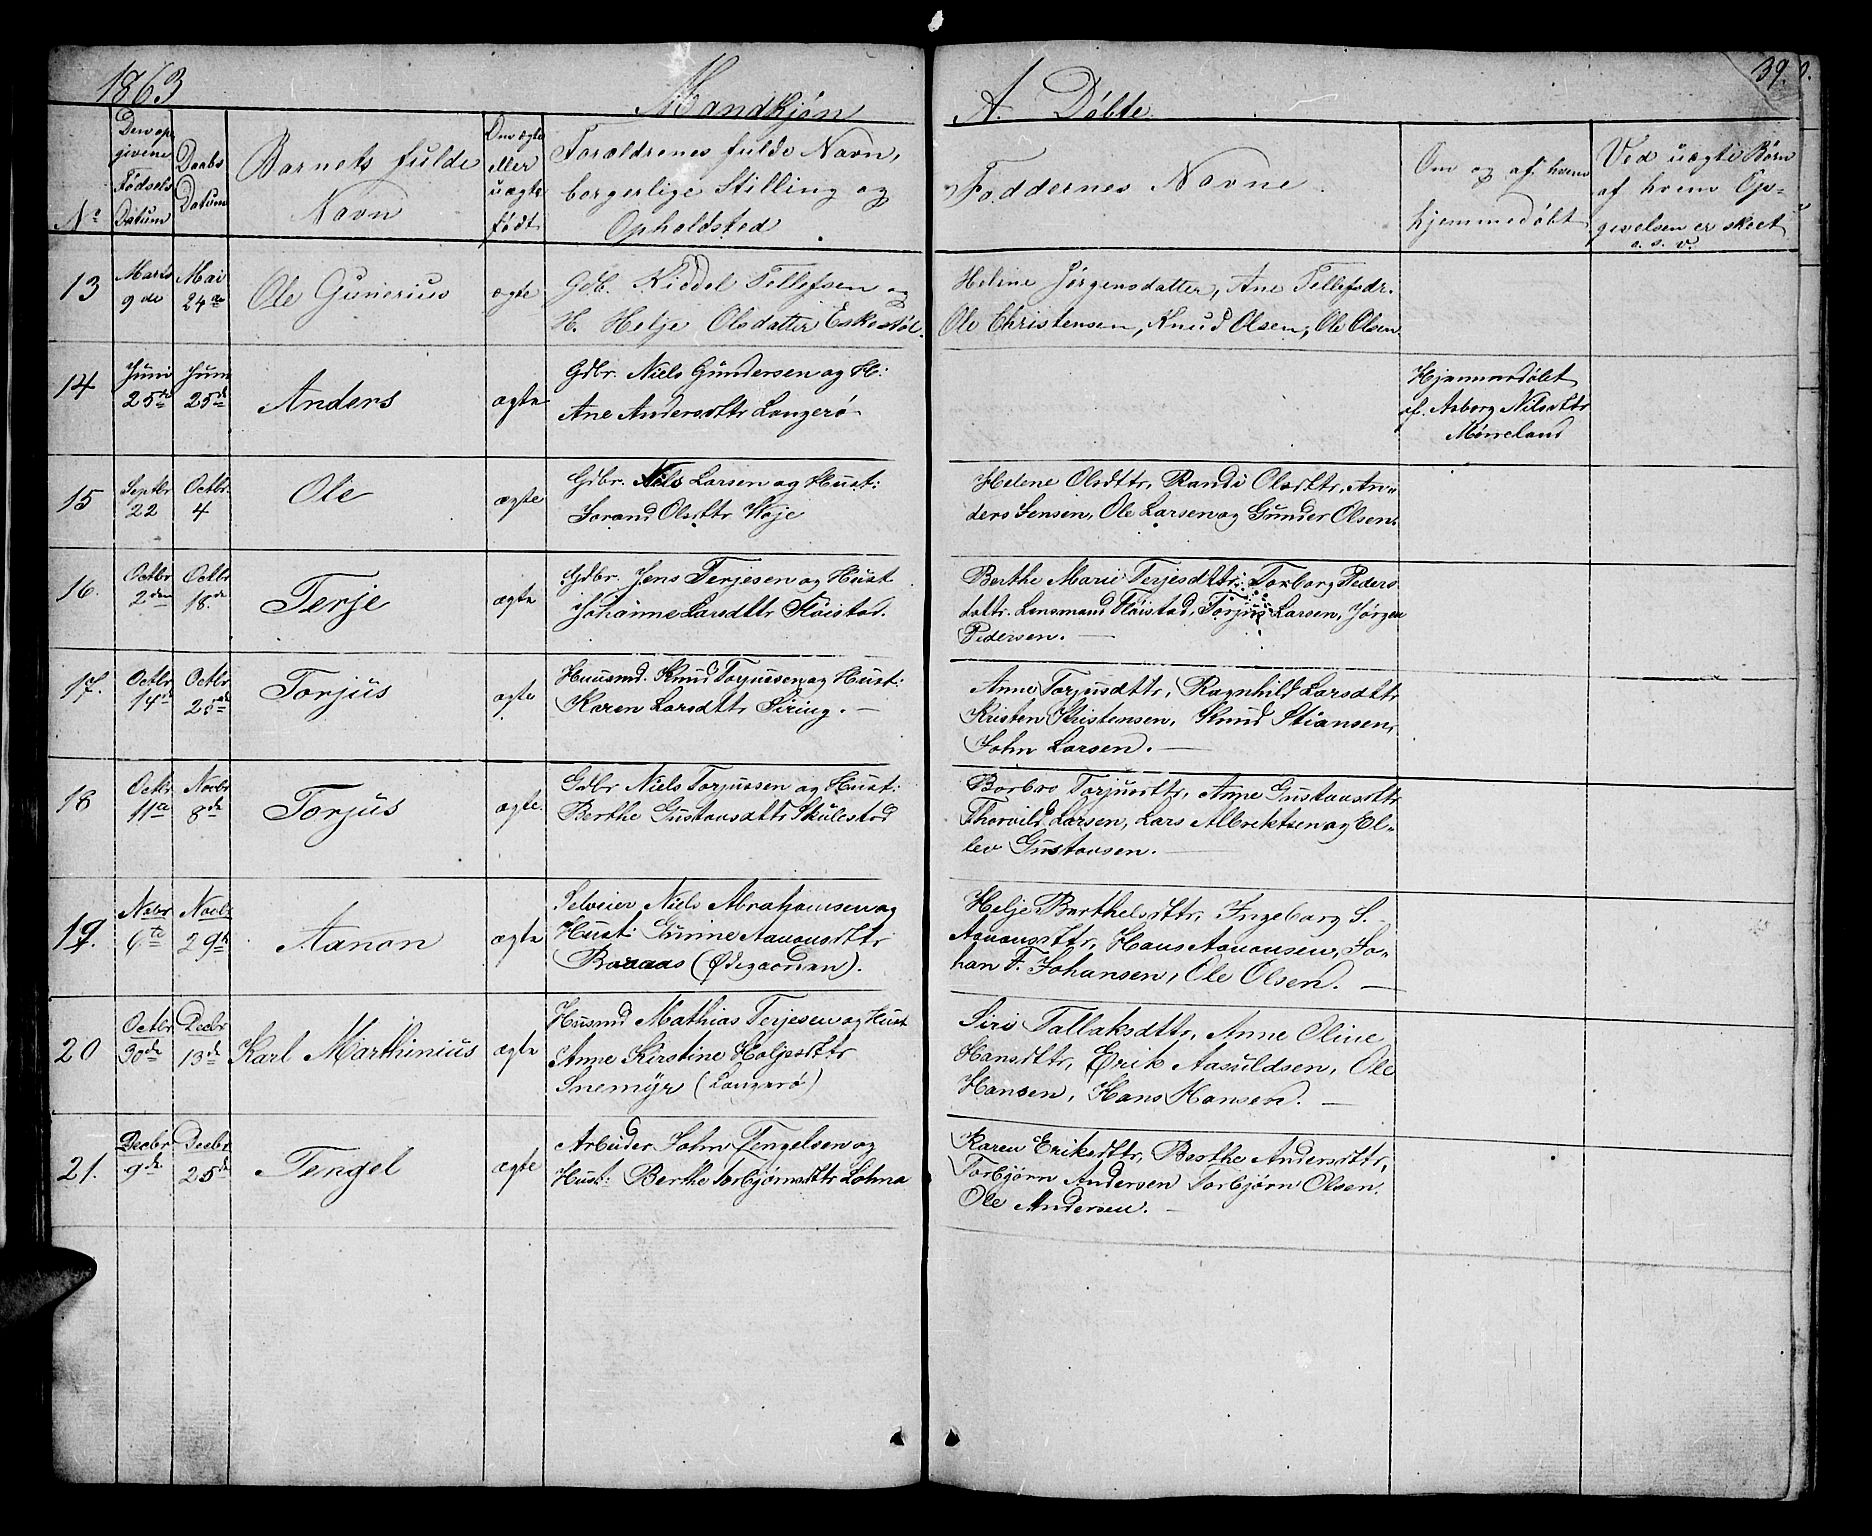 1863
Mandkjøn
A. Døbte.
39
No
Den op-
givne
Fødsels
Datum
Daabs
Datum
Barnets fulde
Navn
Om ægte
eller
uægte
født
Forældrenes fulde Navn,
borgerlige Stilling og
Opholdsted
Faddernes Navne
Om og af hvem
hjemmedøbt
Ved uægte Børn
af hvem Op-
givelsen er skeet
o. s. v.
13
Marts
9de
Mai
24de
Ole Gunerius
ægte
Gdb. Kiddel Tellefsen og
H. Helje Olsdatter Eskestøl.
Helene Jørgensdatter, Ane Tellefsdr.
Ole Christensen, Knud Olsen, Ole Olsen
14
Juni
25de
Juni
25de
Anders
ægte
Gdbr. Niels Gundersen og H:
Ane Andersdttr Langerø
Hjemmedøbt
af. Asborg Nilsdttr
Mørreland
15
Septbr
22
Octbr.
4
Ole
ægte
Gdbr. Nils Larsen og Hust:
Torand Olsdttr Woje
Helene Olsdttr, Randi Olsdttr, An-
ders Jensen, Ole Larsen og Gunder Olsen.
16.
Octbr
2den
Octbr
18.de
Terje
ægte
Gdbr. Jens Terjesen og Hust
Johanne Larsdttr Fløistad.
Berthe Marie Terjesdttr: Torborg Peders
dattr. Lensmand Fløistad, Torjus Larsen, Jørgen
Pedersen. —
17.
Octbr
14de
Octbr
25de
Torjus
ægte
Huusmd. Knud Torjussen og Hust:
Karen Larsdttr Siring. —
Anne Torjusdttr, Ragnhild Larsdttr
Kristen Kristensen, Knud Stiansen,
John Larsen. —
18
Octbr
11te
Novbr
8de
Torjus
ægte
Gdbr Niels Torjussen og Hust:
Berthe Gustavsdttr Skulestad
Barbro Torjusdttr, Anne Gustavsdttr
Thorvild Larsen, Lars Albrektsen og El-
lev Gustavsen. —
19.
Novbr
6te
Novbr
29de
Aanon
ægte
Selveier Niels Abrahamsen og
Hust: Gunne Aanonsdttr
Baaaas (Ødegaarden).
Helje Berthelsdttr, Ingeborg S.
Aanonsdttr, Hans Aanonsen, Jo-
han F. Johansen, Ole Olsen. —
20
Octbr
30de
Decbr
13de
Karl Marthinius
ægte
Husmd Mathias Terjesen og Hust
Anne Kirstine Holjesdttr
Snemyr (Langerø)
Siri Tallaksdttr, Anne Oline
Hansdttr, Erik Aasuldsen, Ole
Hansen, Hans Hansen. —
21.
Decbr
9de
Decbr
25de
Tengel
ægte
Arbeider John Tengelsen og
Hust: Berthe Torbjørnsdttr Løhna
Karen Eriksdttr, Berthe Andersdttr,
Torbjørn Andersen Torbjørn Olsen.
Ole Andersen. —